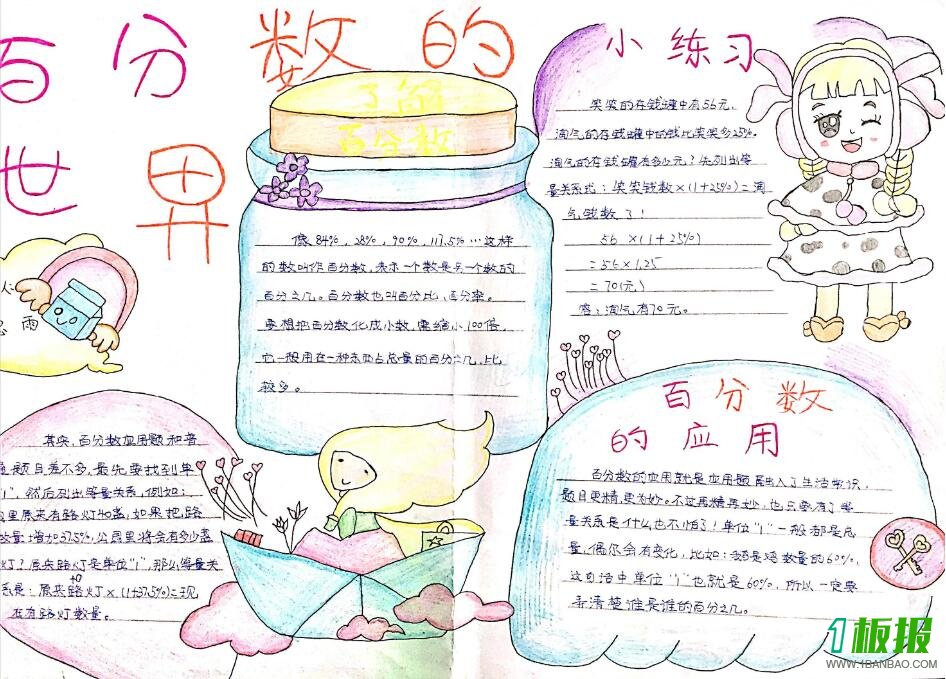 百分数的
世界
了向的
百分数
像84%，28%，90%，117.5%…这样
的数叫作百分数，表示一个数是另一个数的
百分之几。百分数也叫百分比，百分率。
要想把百分数化成小数，需缩小100倍，
它一般用在一种东西占总量的百分之几，比
较多。
小练习
笑笑的存钱罐中有56元，
淘气的存钱罐中的钱比笑笑多25%。
淘气的存钱罐有多少元？先列出等
量关系式：笑笑钱数×(1+25%)=淘
气钱数了！
56×(1+25%)
=56×1.25
=70(元)
答：淘气有70元。
雨
其实，百分数应用题和普
题目差不多，最先要找到单
"1"，然后列出等量关系，例如：
里原来有路灯40盏，如果把路
数量增加37.5%，公园里将会有多少盏
灯？原来路灯是单位"1"，那么等量关
系是：原来路灯×(1+37.5%)=现
在有路灯数量。
百分数
的应用
百分数的应用就是应用题届出入了生活常识，
题目更精更为妙。不过再精再妙，也只要有了等
量关系是什么也不怕了！单位"1"一般都是总
量，偶尔会有变化，比如：鹅是鸡数量的60%，
这句话中单位"1"也就是60%，所以一定要
弄清楚谁是谁的百分之几。
1板报
WWW.1BANBAO.COM